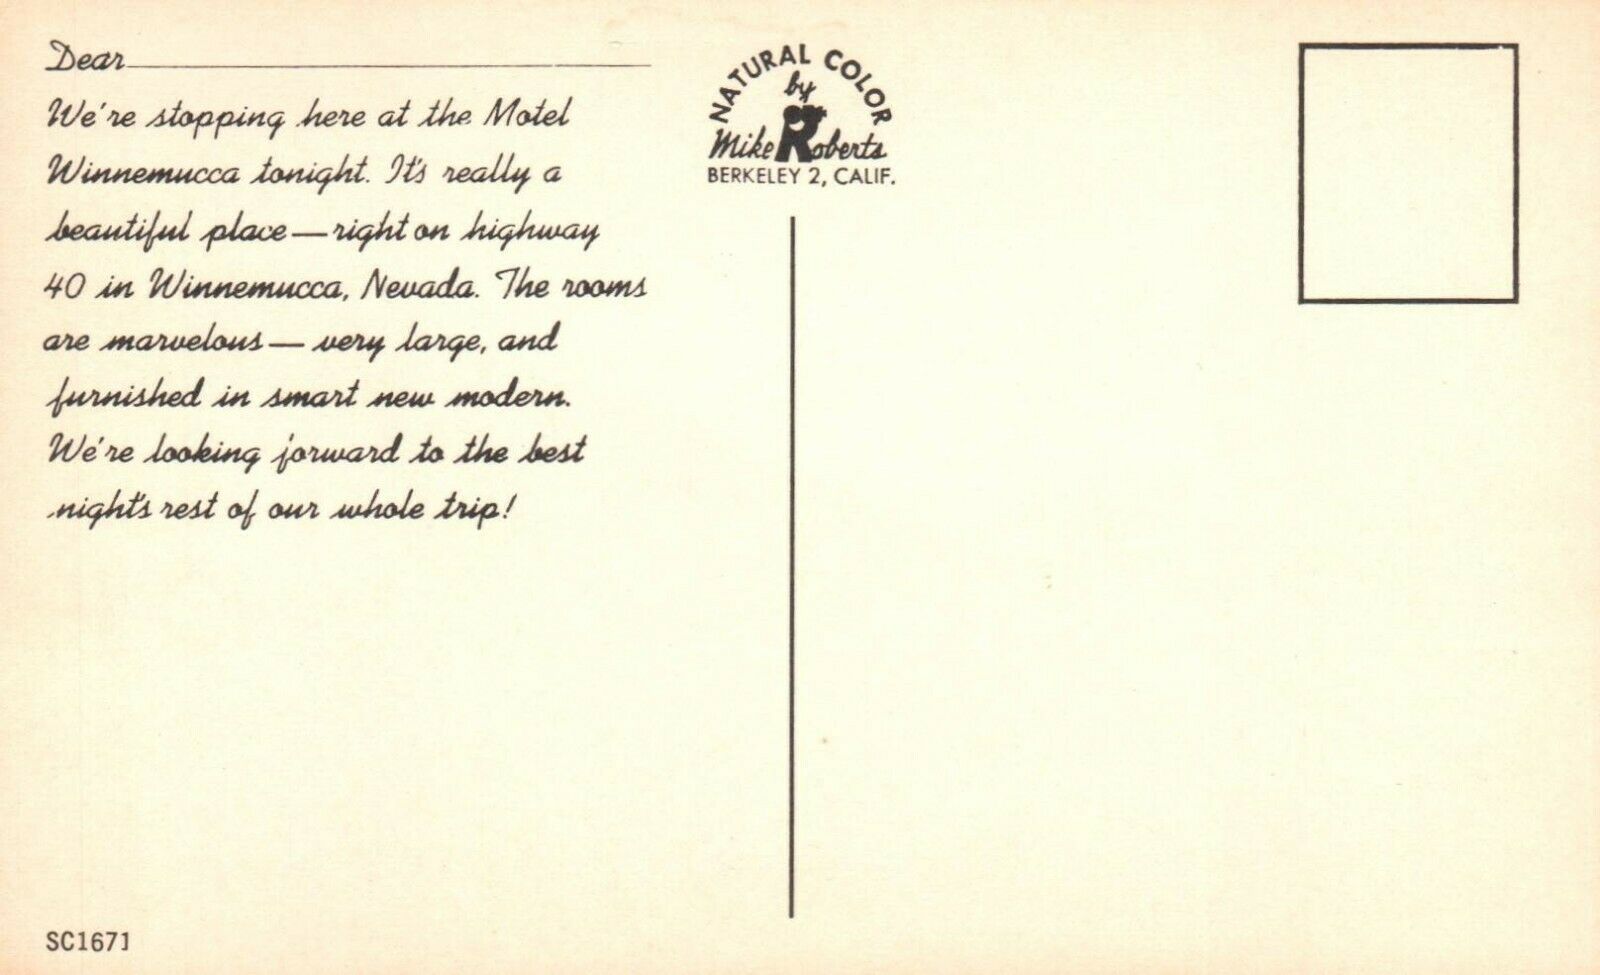 Dear
We're stopping here at the Motel
Winnemucca tonight. It's really a
beautiful place—right on highway
40 in Winnemucca, Nevada. The rooms
are marvelous— very large, and
furnished in smart new modern.
We're looking forward to the best
night's rest of our whole trip!
NATURAL COLOR
by
Mike Roberts
BERKELEY 2, CALIF.
SC1671